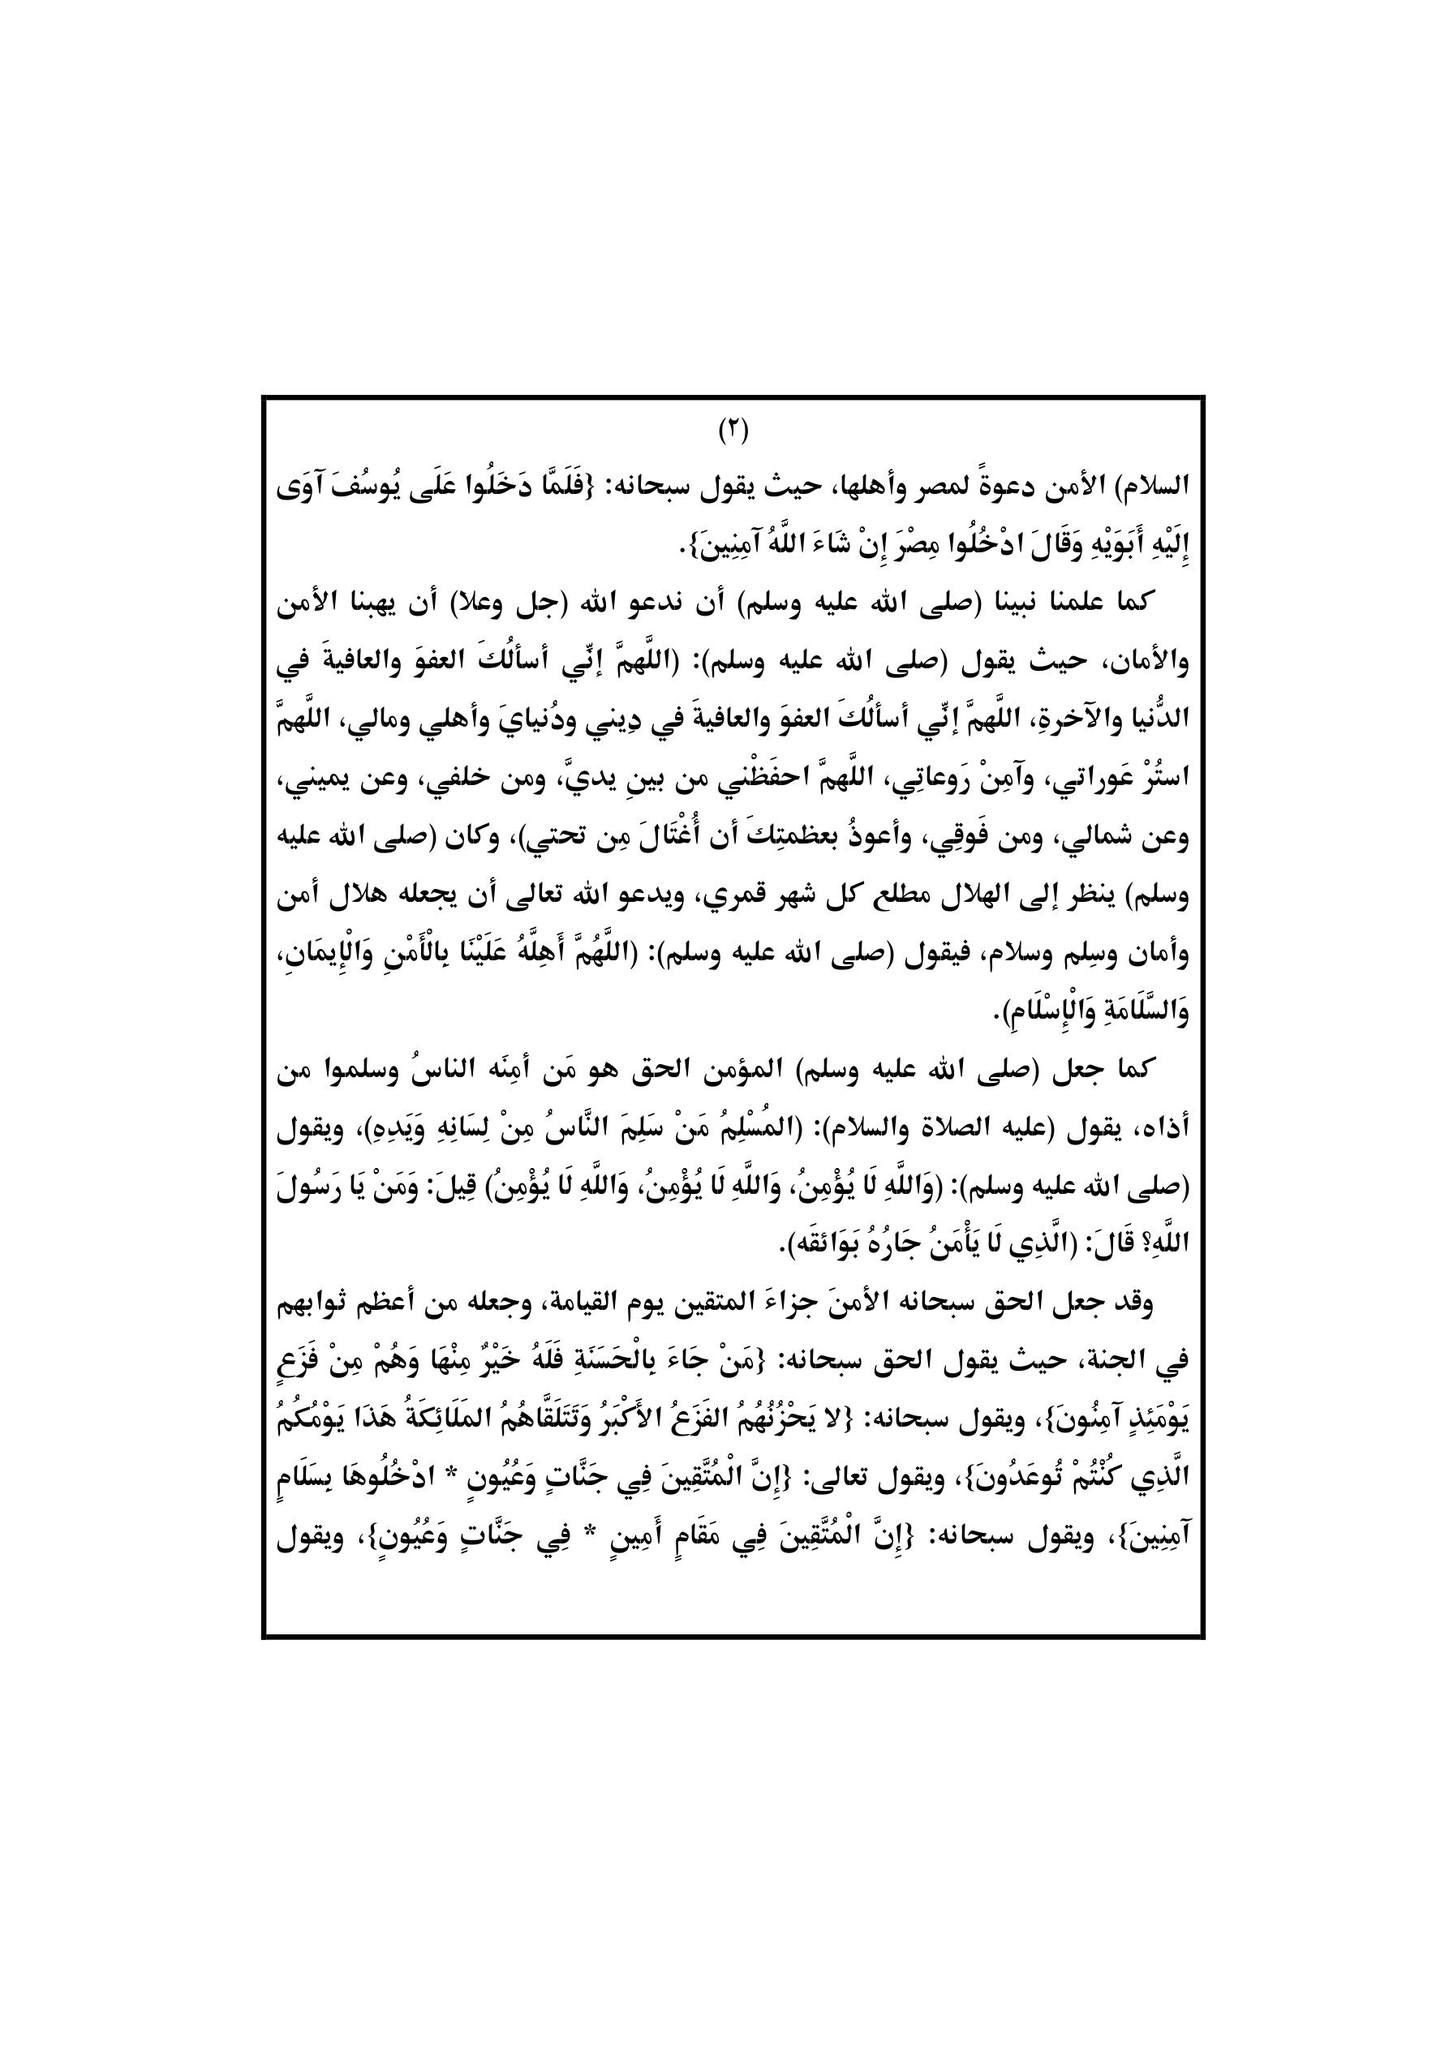 (٢)
السلام) الأمن دعوةً لمصر وأهلها، حيث يقول سبحانه: {فَلَمَّا دَخَلُوا عَلَى يُوسُفَ آوَى
إِلَيْهِ أَبَوَيْهِ وَقَالَ ادْخُلُوا مِصْرَ إِنْ شَاءَ اللَّهُ آمِنِينَ}.
كما علمنا نبينا (صلى الله عليه وسلم) أن ندعو الله (جل وعلا) أن يهبنا الأمن
والأمان، حيث يقول (صلى الله عليه وسلم): (اللَّهمَّ إنِّي أسألُكَ العفوَ والعافيةَ في
الدُّنيا والآخرةِ، اللَّهمَّ إنِّي أسألُكَ العفوَ والعافيةَ في دِيني ودُنيايَ وأهلي ومالي، اللَّهمَّ
استُرْ عَوراتي، وآمِنْ رَوعاتِي، اللَّهمَّ احفَظْني من بينِ يديَّ، ومن خلفي، وعن يميني،
وعن شمالي، ومن فَوقِي، وأعوذُ بعظمتِكَ أن أُغْتَالَ مِن تحتي)، وكان (صلى الله عليه
وسلم) ينظر إلى الهلال مطلع كل شهر قمري، ويدعو الله تعالى أن يجعله هلال أمن
وأمان وسِلم وسلام، فيقول (صلى الله عليه وسلم): (اللَّهُمَّ أَهِلَّهُ عَلَيْنَا بِالْأَمْنِ وَالْإِيمَانِ،
وَالسَّلَامَةِ وَالْإِسْلَامِ).
كما جعل (صلى الله عليه وسلم) المؤمن الحق هو مَن أمِنَه الناسُ وسلموا من
أذاه، يقول (عليه الصلاة والسلام): (المُسْلِمُ مَنْ سَلِمَ النَّاسُ مِنْ لِسَانِهِ وَيَدِهِ)، ويقول
(صلى الله عليه وسلم): (وَاللَّهِ لَا يُؤْمِنُ، وَاللَّهِ لَا يُؤْمِنُ، وَاللَّهِ لَا يُؤْمِنُ) قِيلَ: وَمَنْ يَا رَسُولَ
اللَّهِ؟ قَالَ: (الَّذِي لَا يَأْمَنُ جَارُهُ بَوَائقَه).
وقد جعل الحق سبحانه الأمنَ جزاءَ المتقين يوم القيامة، وجعله من أعظم ثوابهم
في الجنة، حيث يقول الحق سبحانه: {مَنْ جَاءَ بِالْحَسَنَةِ فَلَهُ خَيْرٌ مِنْهَا وَهُمْ مِنْ فَزَعٍ
يَوْمَئِذٍ آمِنُونَ}، ويقول سبحانه: {لا يَحْزُنُهُمُ الفَزَعُ الأَكْبَرُ وَتَتَلَقَّاهُمُ المَلَائِكَةُ هَذَا يَوْمُكُمُ
الَّذِي كُنْتُمْ تُوعَدُونَ}، ويقول تعالى: {إِنَّ الْمُتَّقِينَ فِي جَنَّاتٍ وَعُيُونٍ * ادْخُلُوهَا بِسَلَامٍ
آمِنِينَ}، ويقول سبحانه: {إِنَّ الْمُتَّقِينَ فِي مَقَامٍ أَمِينٍ * فِي جَنَّاتٍ وَعُيُونٍ}، ويقول